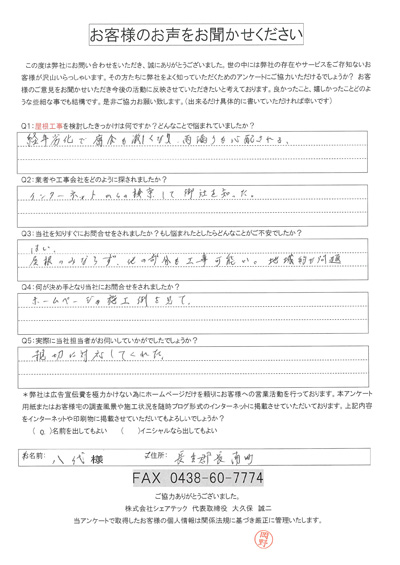 お客様のお声をお聞かせください
この度は弊社にお問い合わせをいただき、誠にありがとうございました。世の中には弊社の存在やサービスをご存知ないお
客様が沢山いらっしゃいます。その方たちに弊社をよく知っていただくためのアンケートにご協力いただけるでしょうか？ お客
様のご意見をお聞かせいただき今後の活動に反映させていただきたいと考えております。良かったこと。嬉しかったことどのよ
うな些細な事でも結構です。是非ご協力お願い致します。（出来るだけ具体的に書いていただければ幸いです）
Q1：屋根工事を検討したきっかけは何ですか？どんなことで悩まれていましたか？
経年劣化で 雨漏りも心配される。
Q2：業者や工事会社をどのように探されましたか？
インターネットから検索して御社を知った。
Q3：当社を知りすぐにお問合せをされましたか？もし悩まれたとしたらどんなことがご不安でしたか？
はい、
屋根のみならず、他の部分も工事可能い。地域的な問題
Q4：何が決め手となり当社にお問合せをされましたか？
ホームページの施工例を見て、
Q5：実際に当社担当者がお伺いしていかがでしたでしょうか？
親切に対応してくれた。
＊弊社は広告宣伝費を極力かけない為にホームページだけを頼りにお客様への営業活動を行っております。本アンケート
用紙またはお客様宅の調査風景や施工状況を随時ブログ形式のインターネットに掲載させていただいております。上記内容
をインターネットや印刷物に掲載させていただいてもよろしいでしょうか？
（ o ）名前を出してもよい （ ）イニシャルなら出してもよい
お名前： 八代 様 ご住所： 長生郡長南町
FAX 0438-60-7774
ご協力ありがとうございました。
株式会社シェアテック 代表取締役 大久保 誠二
当アンケートで取得したお客様の個人情報は関係法規に基づき厳正に管理いたします。
岡野